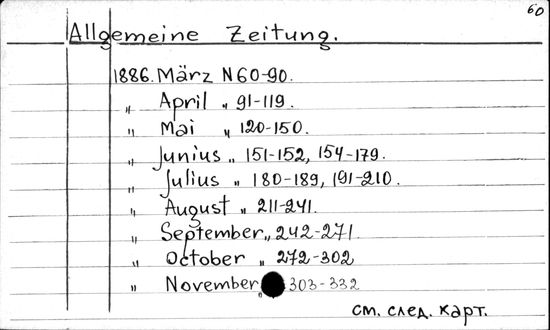 60
Allgemeine Zeitung.
1886. März N 60-90.
„ April „ 91-119.
„ Mai „ 120-150.
„ Junius „ 151-152, 154-179.
„ Julius „ 180-189, 191-210.
„ August „ 211-241.
„ September „ 242-271
„ October „ 272-302
„ November „ 303-332
см. след. карт.